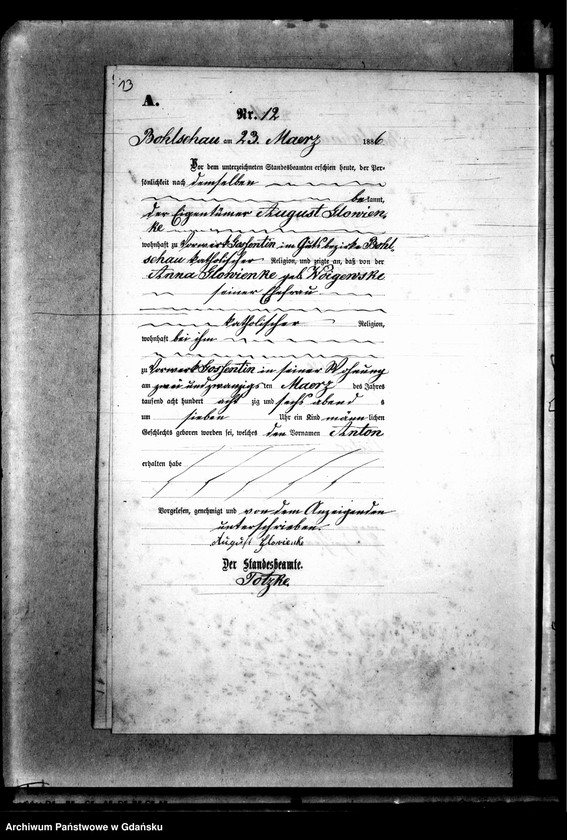 13
A.
Nr. 12
Bohlschau am 23. Maerz 1886
Vor dem unterzeichneten Standesbeamten erschien heute, der Per-
sönlichkeit nach demselben
bekannt,
der Eigentümer August Glowien
ke
wohnhaft zu Vorwerk Gossentin im Gutsbezirke Bohl-
schau katholischer Religion, und zeigte an, daß von der
Anna Glowienke geb. Woigewske
seiner Ehefrau
katholischer Religion,
wohnhaft bei ihm
zu Vorwerk Gossentin in seiner Wohnung
am zwei und zwanzigs ten Maerz des Jahres
tausend acht hundert acht zig und sechs abend s
um sieben Uhr ein Kind männ lichen
Geschlechts geboren worden sei, welches den Vornamen Anton
erhalten habe
Vorgelesen, genehmigt und von dem Anzeigenden
unterschrieben.
August Glowienke
Der Standesbeamte.
Totzke.
Archiwum Państwowe w Gdańsku